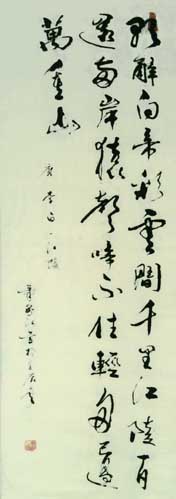 朝辭白帝彩雲間千里江陵一日
還兩岸猿聲啼不住輕舟已過
萬重山
唐李白下江陵